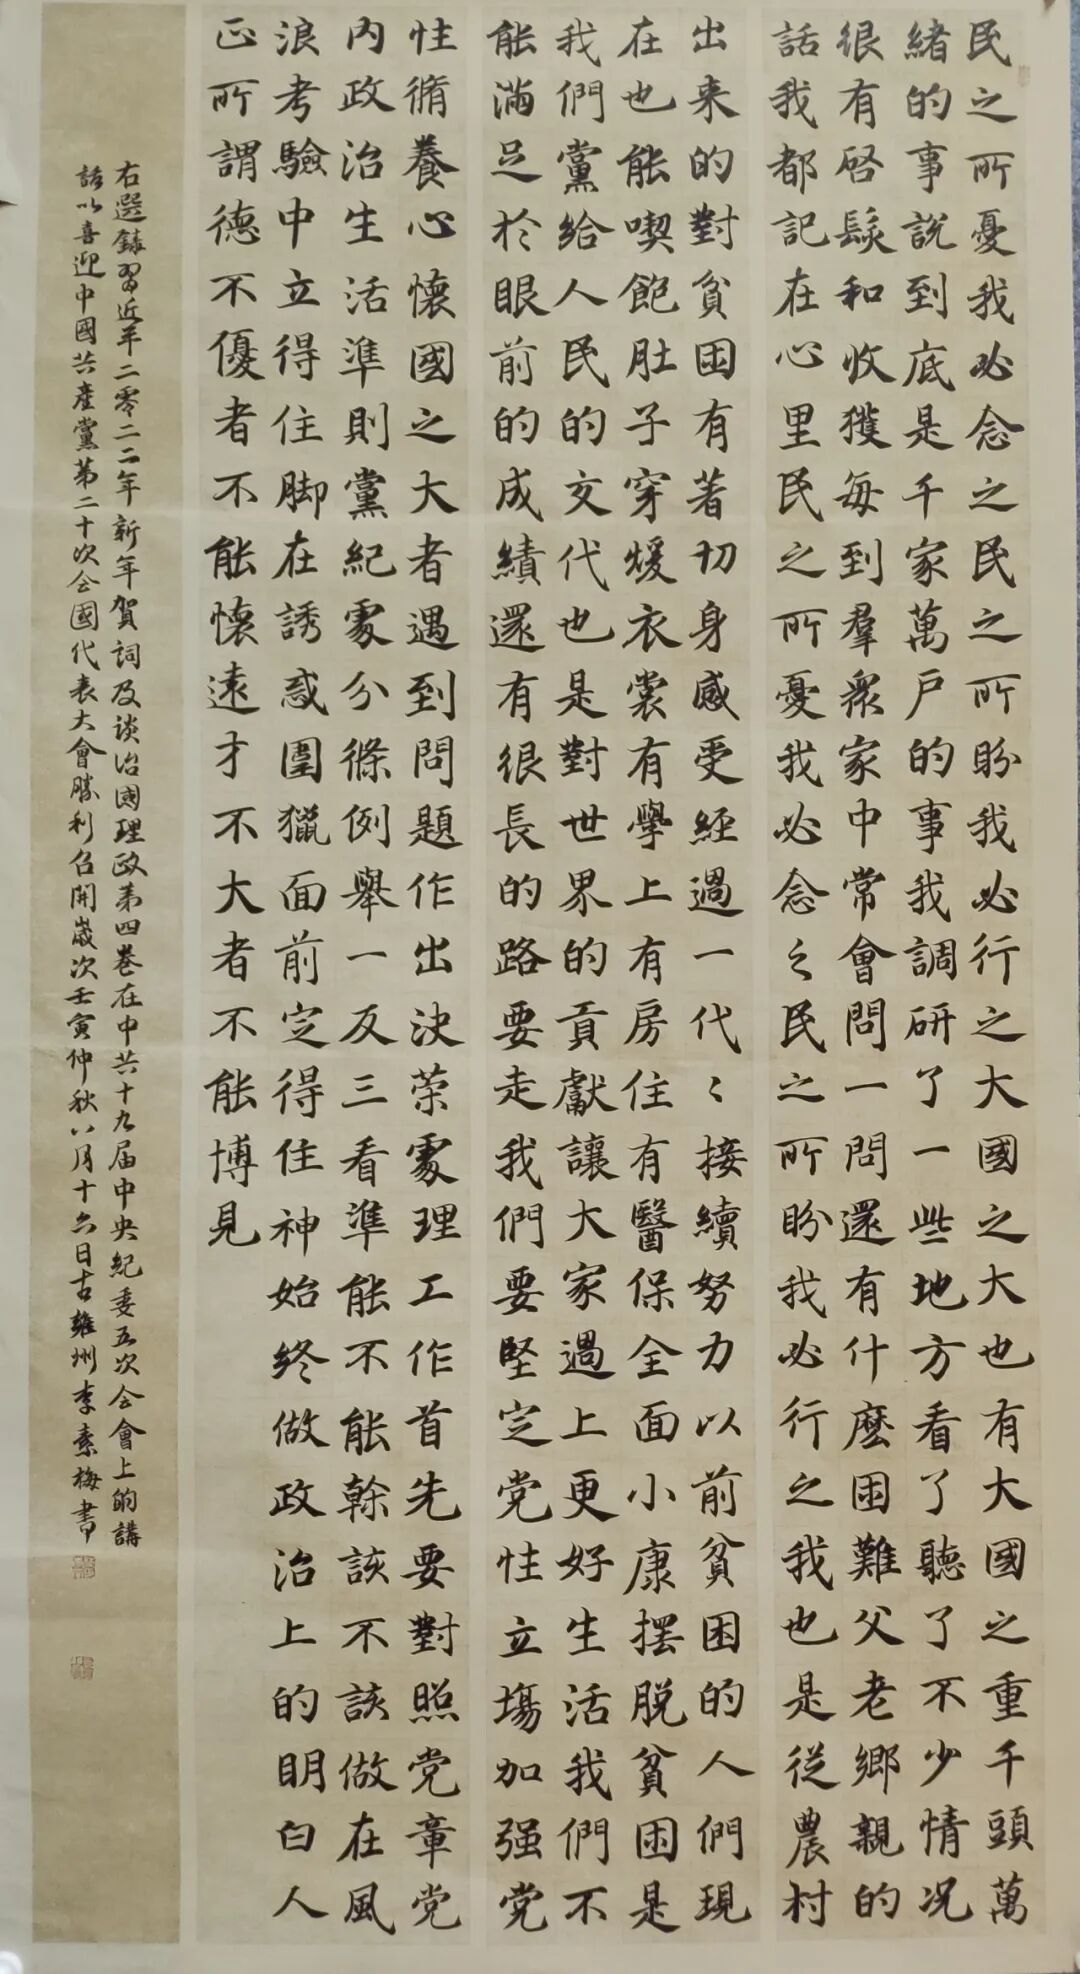 民之所憂我必念之民之所盼我必行之大國之大也有大國之重千頭萬
緒的事說到底是千家萬户的事我調研了一些地方看了聽了不少情况
很有啓髮和收獲每到羣衆家中常會問一問還有什麽困難父老鄉親的
話我都記在心里民之所憂我必念之民之所盼我必行之我也是從農村
出来的對貧困有著切身感受經過一代〻接續努力以前貧困的人們現
在也能喫飽肚子穿煖衣裳有學上有房住有醫保全面小康擺脱貧困是
我們黨給人民的交代也是對世界的貢獻讓大家過上更好生活我們不
能滿足於眼前的成績還有很長的路要走我們要堅定党性立場加强党
性脩養心懷國之大者遇到問題作出決策處理工作首先要對照党章党
内政治生活準則黨紀處分條例舉一反三看準能不能幹該不該做在風
浪考驗中立得住脚在誘惑圍獵面前定得住神始終做政治上的明白人
正所謂德不優者不能懷遠才不大者不能博見
右選錄習近平二零二二年新年賀詞及谈治國理政第四卷在中共十九届中央紀委五次全會上的講
話以喜迎中國共產黨第二十次全國代表大會勝利召開歲次壬寅仲秋八月十六日古雍州李素梅書